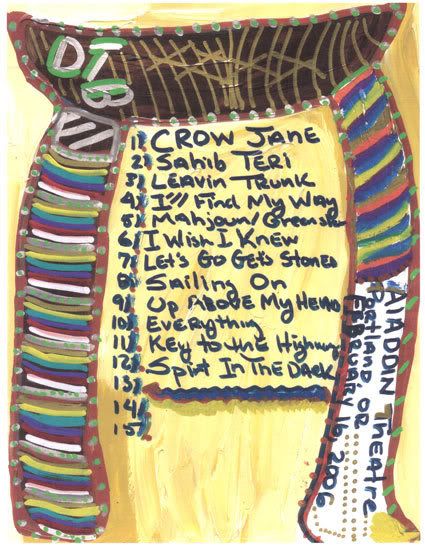 DTB
1) CROW JANE
2) Sahib TERI
3) LEAVIN TRUNK
4) I'll Find My Way
5) Mahjoun/
6) I Wish I Knew
7) Let's Go Get's Stoned
8) Sailing On
9) Up Above My HEAD
10) Everything
11) Key to the Highway
12) Spirt In The DARK
13)
14)
15)
AlADDIN Theatre
Portland OR
FEBRUAIRY 16, 2006